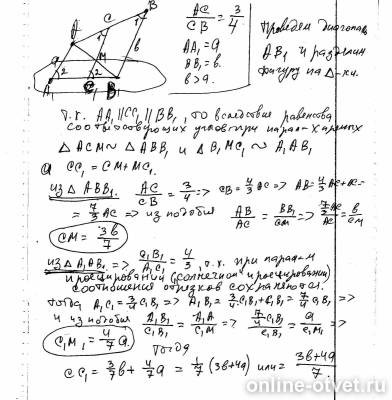 A
C
B
M
a
b
1
1
2
2
A₁
C₁
B₁
AC/CB = 3/4
AA₁ = a
BB₁ = b.
b > a.
Проведем диагональ
AB₁ и разделим
фигуру на Δ-ки.
т.к. AA₁ || CC₁ || BB₁, то вследствие равенства
соответствующих углов при парал-х прямых
Δ ACM ~ Δ ABB₁ и Δ B₁MC₁ ~ A₁AB₁
CC₁ = CM + MC₁.
из Δ ABB₁. AC/CB = 3/4 => CB = 4/3 AC => AB = 4/3 AC + AC =
= 7/3 AC => из подобия AB/AC = BB₁/CM => 7/3 AC/AC = b/CM
CM = 3b/7
из Δ A₁AB₁ => т.к. при парал-м
проецировании
соотношения отрезков сохраняются.
тогда A₁C₁ = 3/4 C₁B₁ => A₁B₁ = 3/4 C₁B₁ + C₁B₁ = 7/4 C₁B₁ =>
и из подобия A₁B₁/C₁B₁ = A₁A/C₁M => 7/4 C₁B₁/C₁B₁ = a/C₁M₁ =>
C₁M₁ = 4/7 a.
тогда
CC₁ = 3/7 b + 4/7 a = 1/7 (3b + 4a) или = 3b + 4a/7.
online-otvet.ru